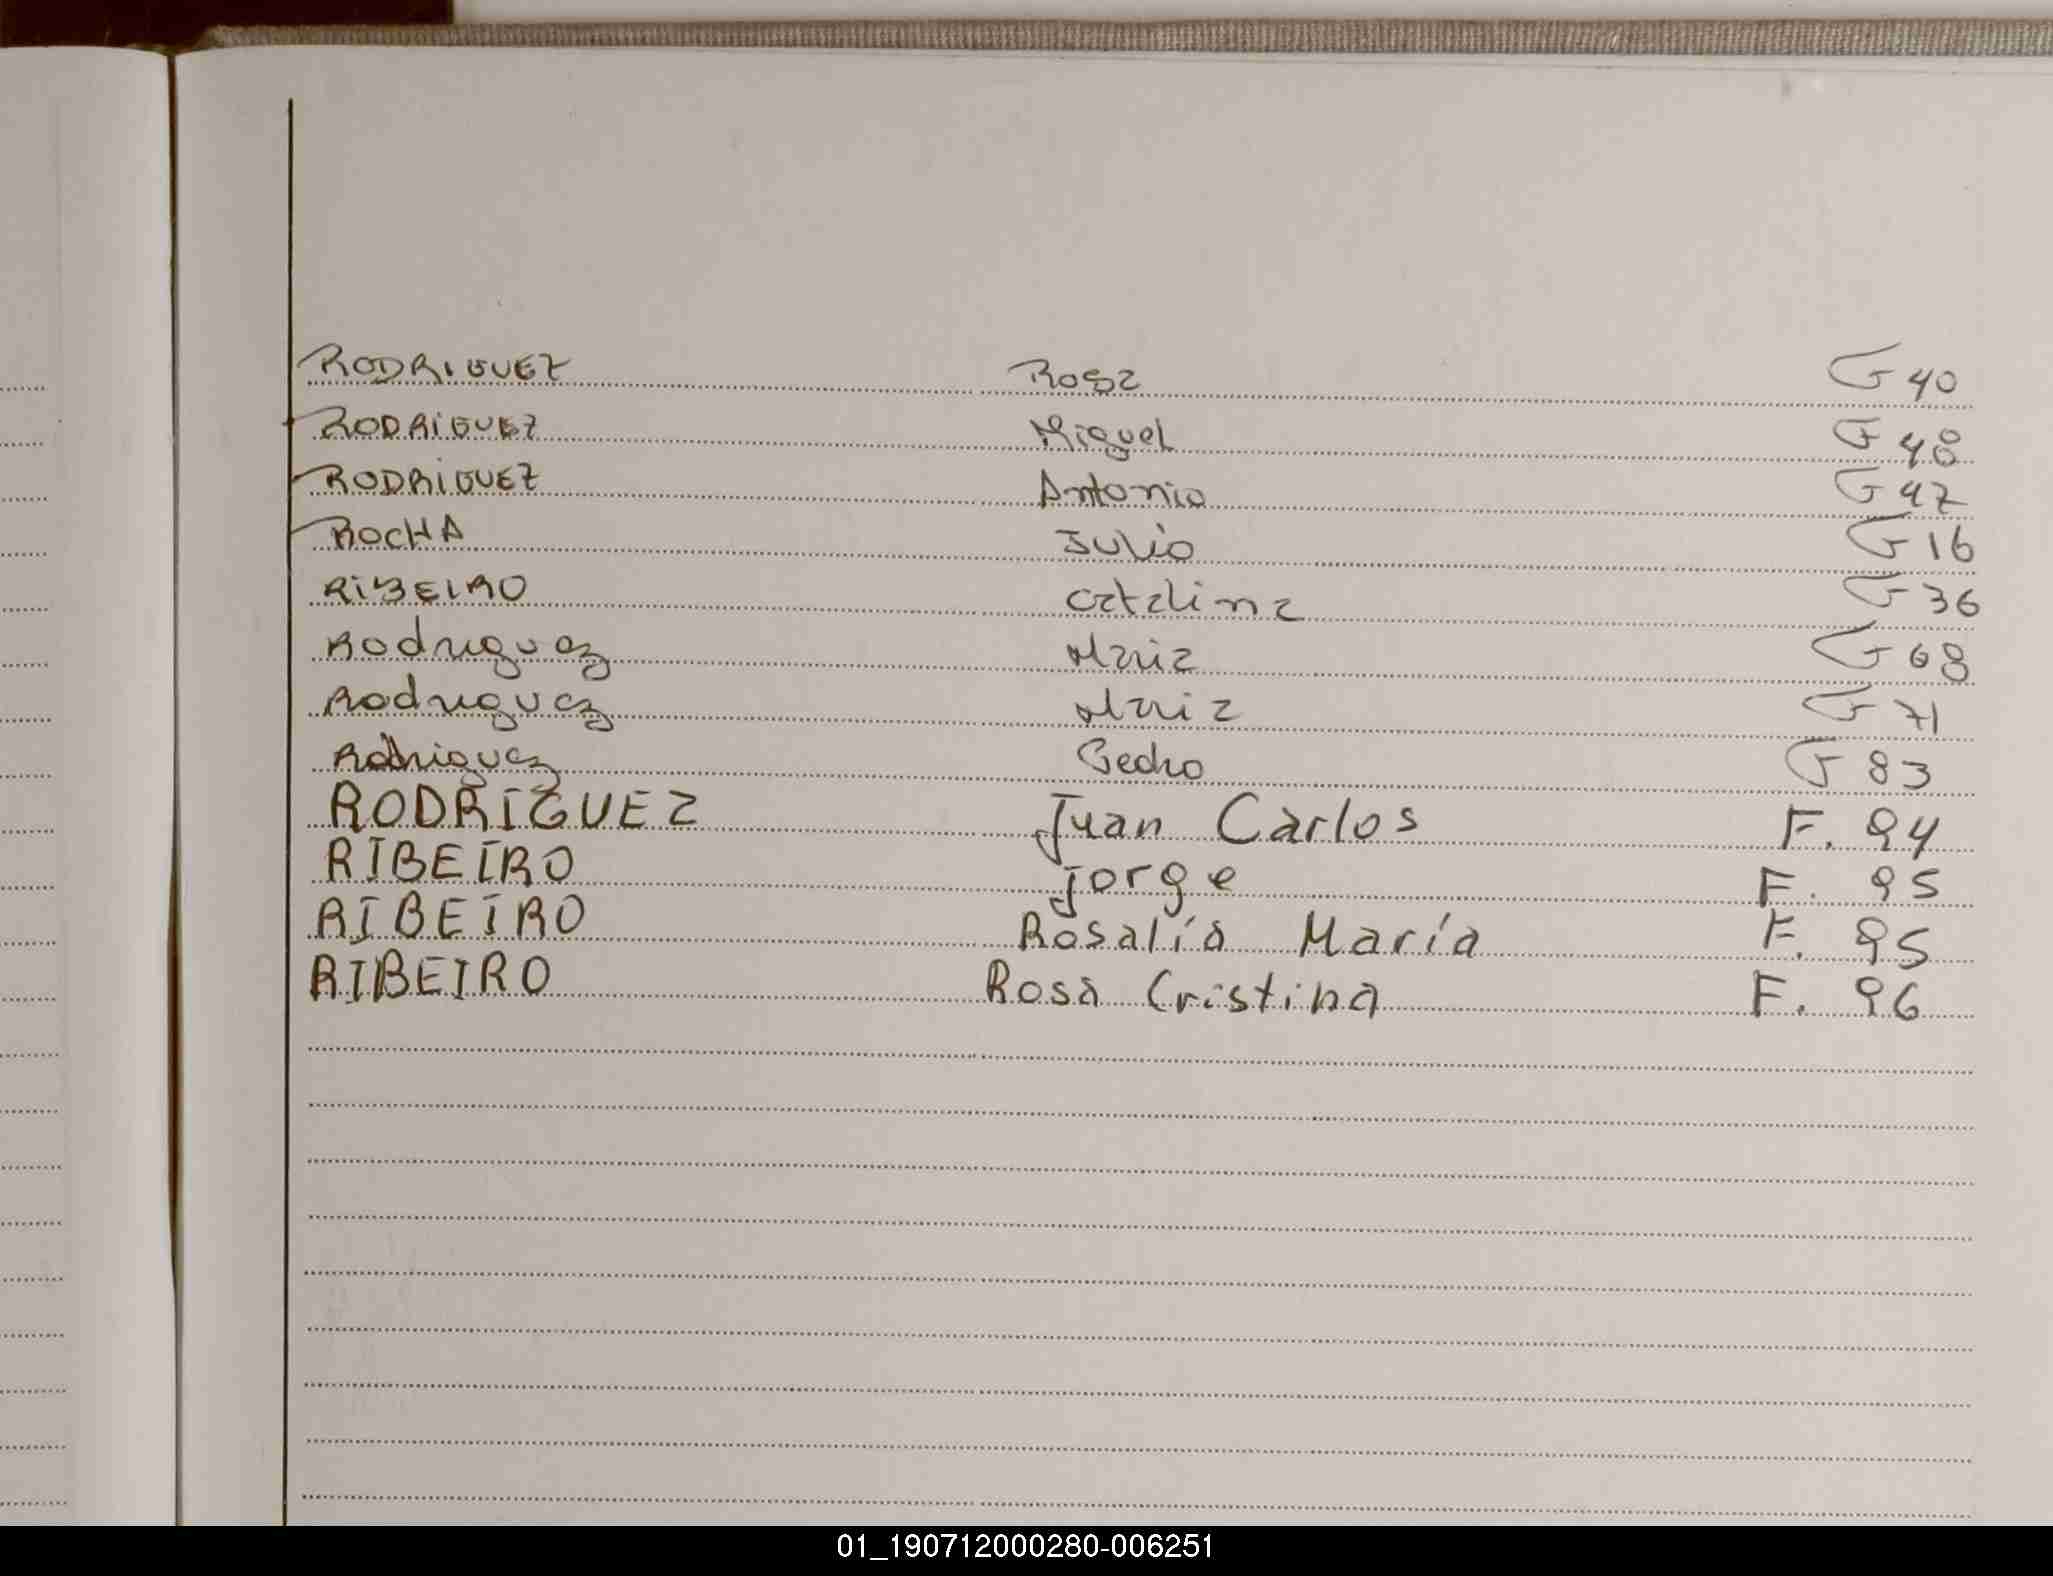 RODRIGUEZ Rosa F 40
RODRIGUEZ Miguel F 48
RODRIGUEZ Antonio F 47
ROCHA Julio F 16
RIBEIRO Catalina F 36
Rodriguez Maria F 68
Rodriguez Maria F 71
Rodriguez Pedro F 83
RODRIGUEZ Juan Carlos F. 94
RIBEIRO Jorge F. 95
RIBEIRO Rosalía María F. 95
RIBEIRO Rosa Cristina F. 96
01_190712000280-006251